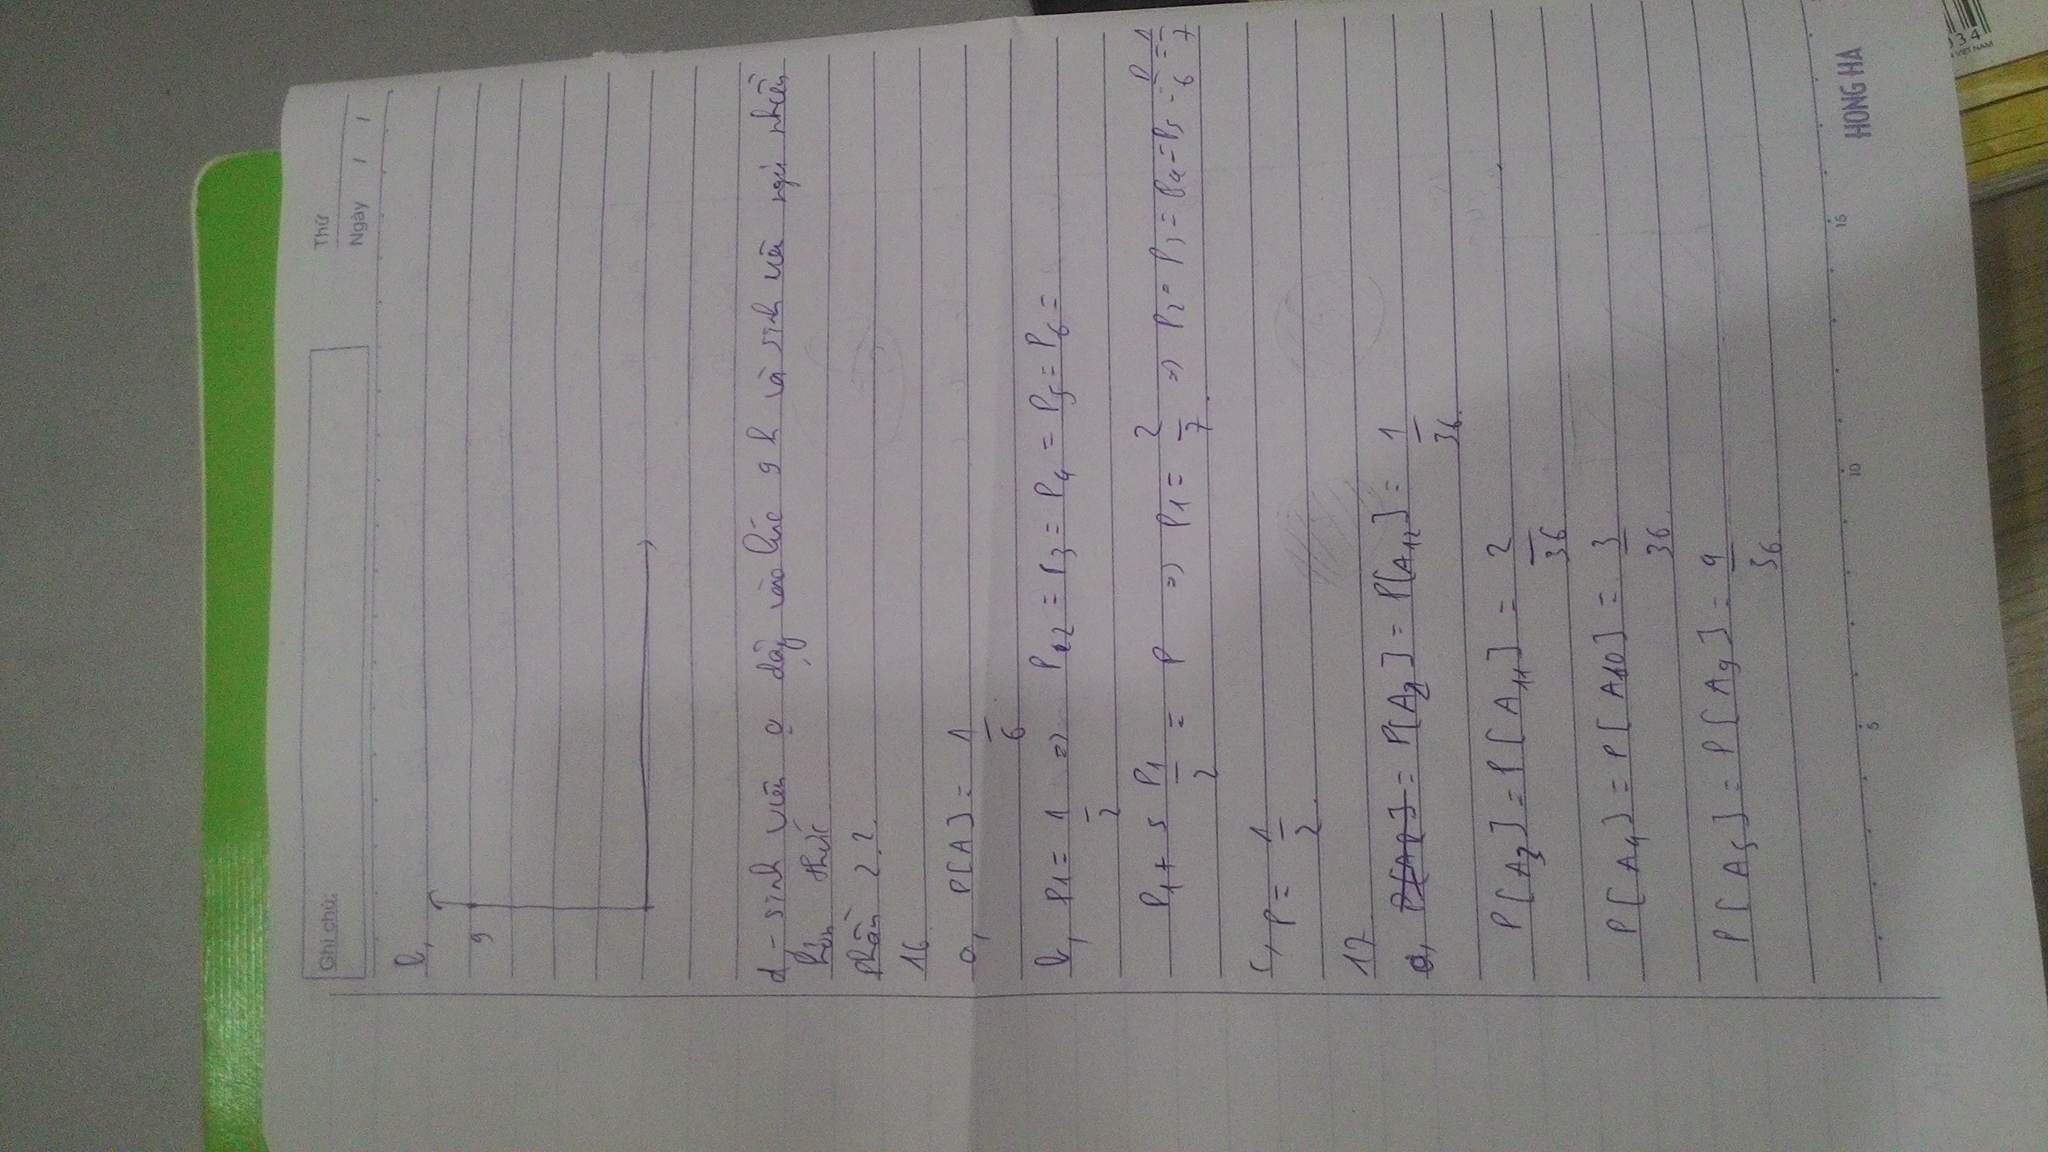 Thứ
Ngày / /
Ghi chú:
b,
9
d - sinh viên a dậy vào lúc 9h và sinh viên ngủ nhiều
hơn thức
Phần 2.2.
16.
a, P[A] = 1/6
b, P1 = 1/2 => P2 = P3 = P4 = P5 = P6 =
P1 + 5 P1/2 = P => P1 = 2/7 => P2 = P3 = P4 = P5 = P6 = 1/7
c, P = 1/2
17.
a, = P[A2] = P[A12] = 1/36.
P[A3] = P[A11] = 2/36.
P[A4] = P[A10] = 3/36.
P[A5] = P[A9] = 4/36.
5 10 15
HONG HA
034
VIET NAM